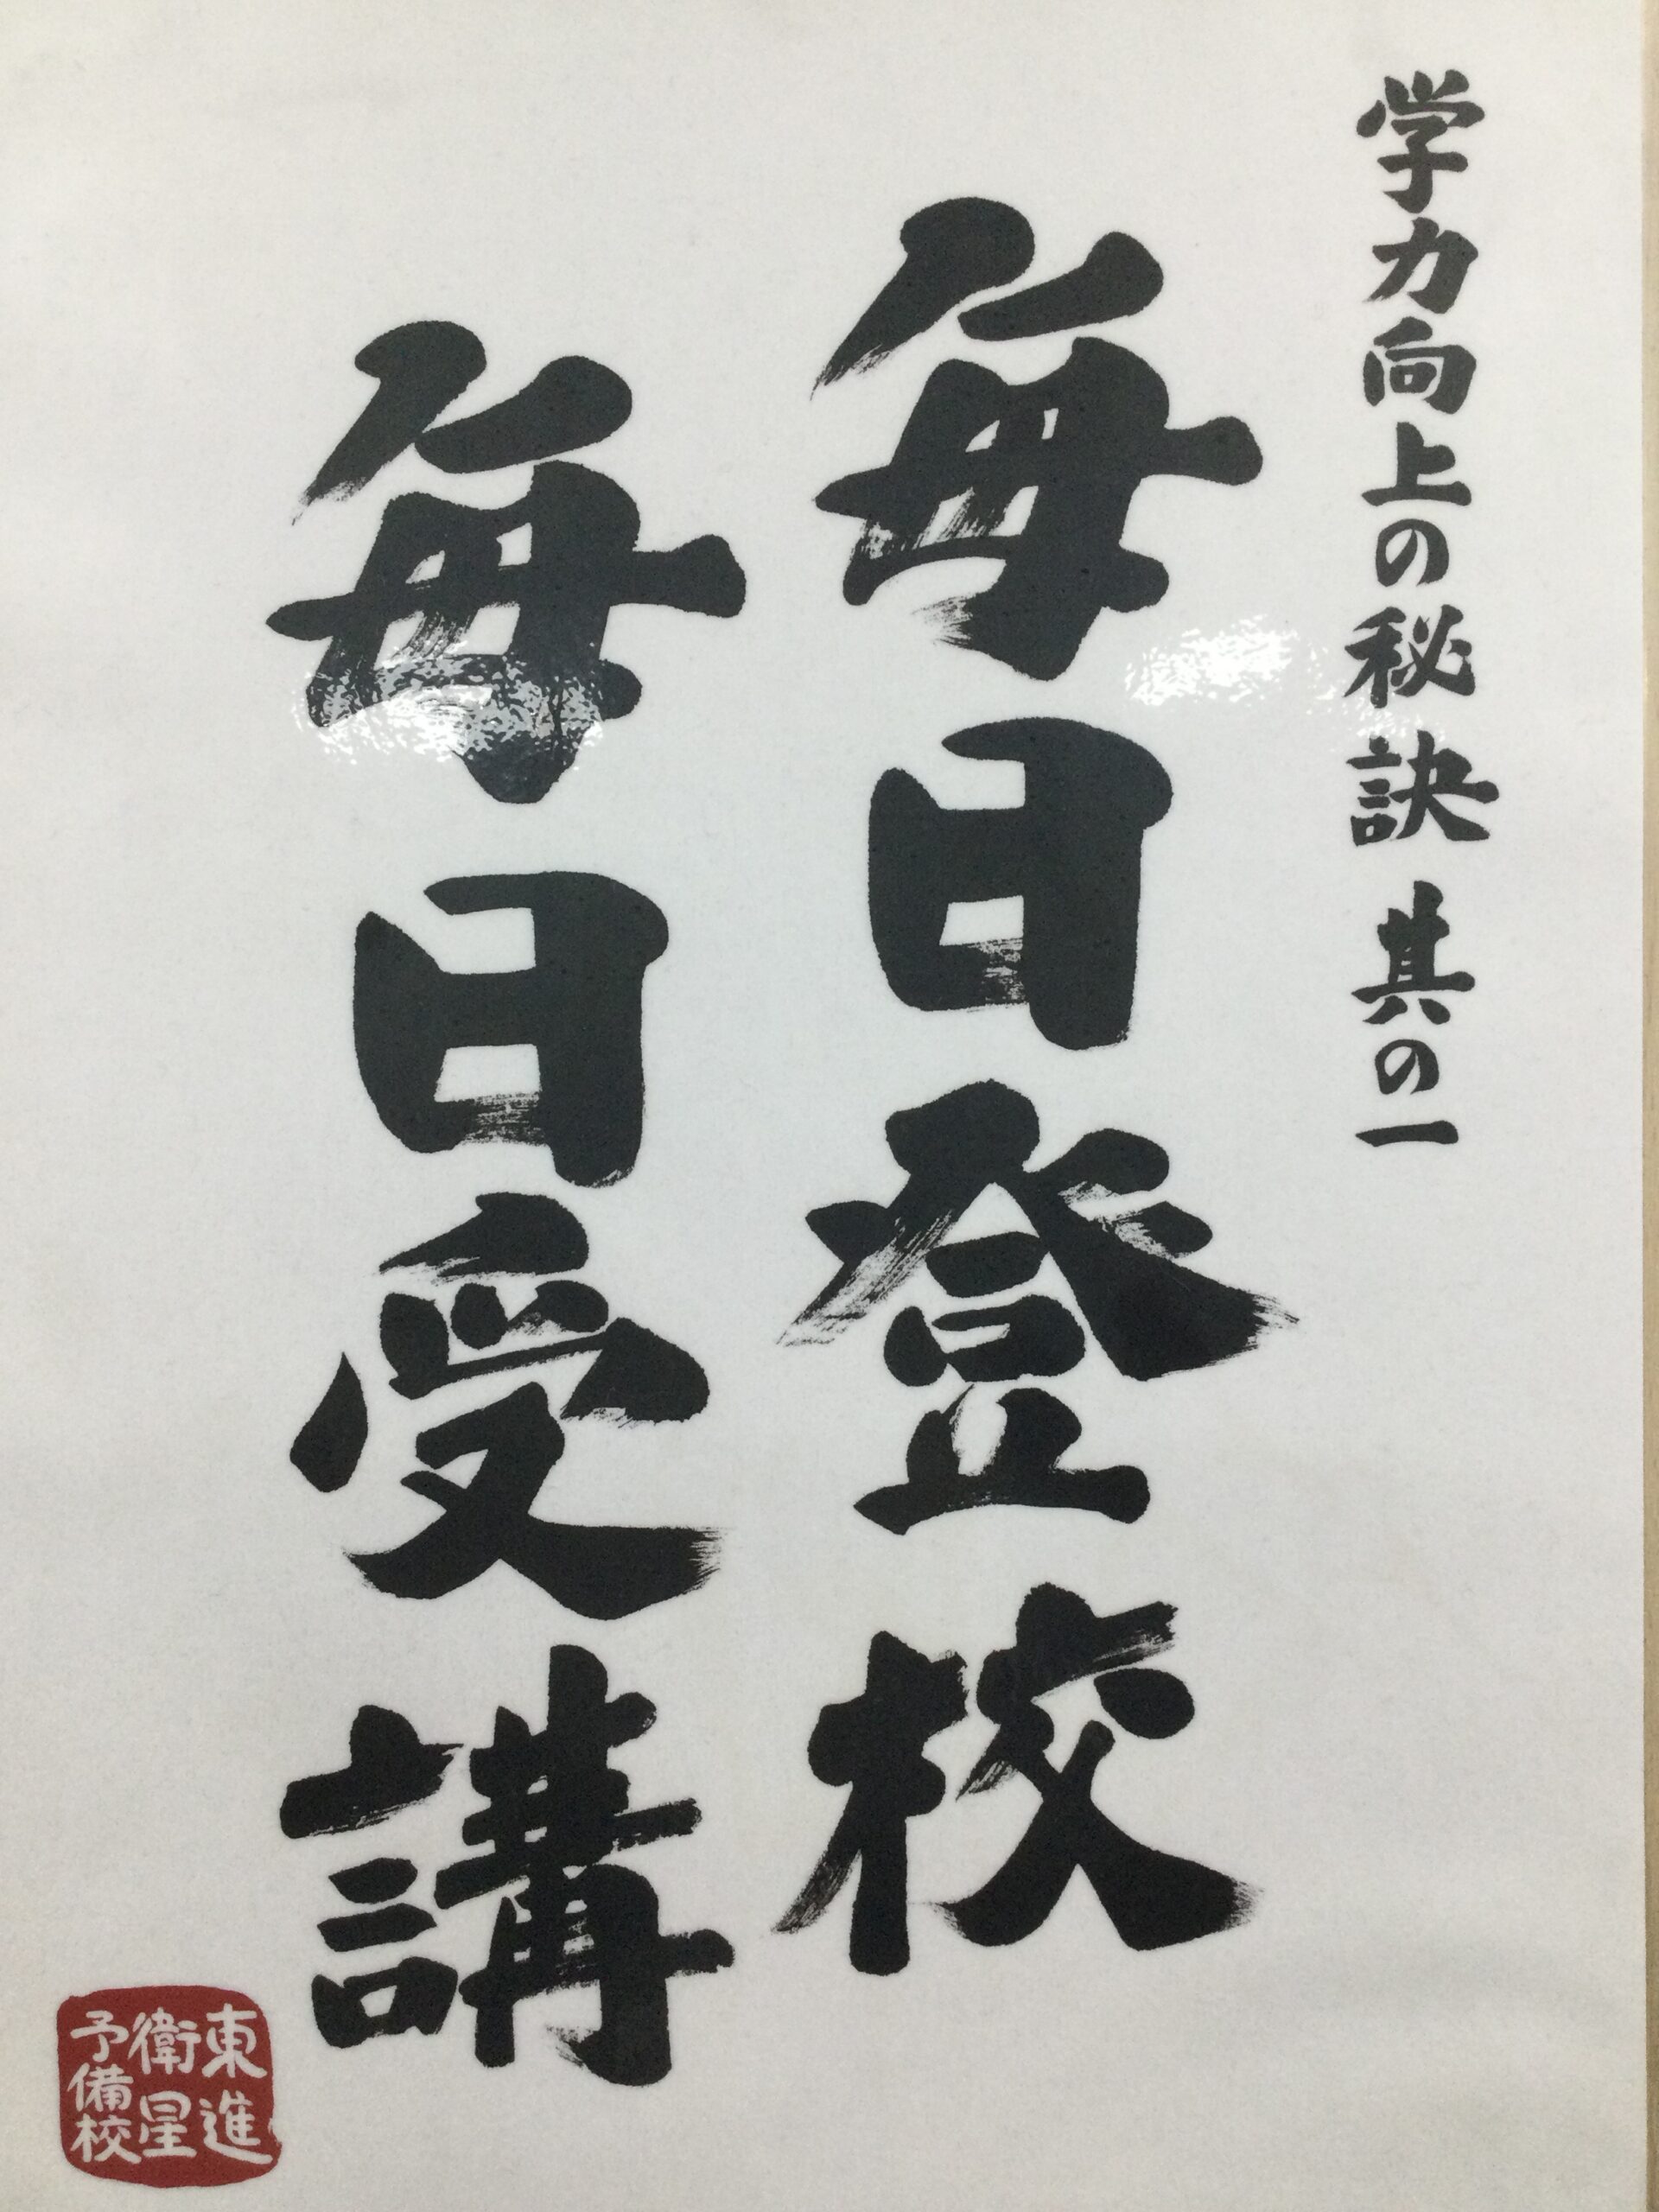 学力向上の秘訣 其の一
毎日登校
毎日受講
東進
衛星
予備校